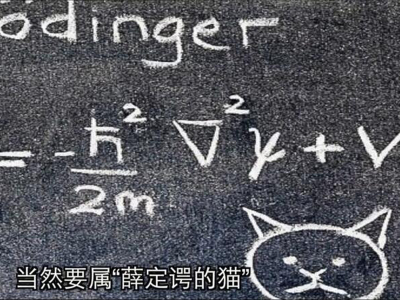 ödinger
= -ħ²/2m ∇²ψ + V
当然要属“薛定谔的猫”